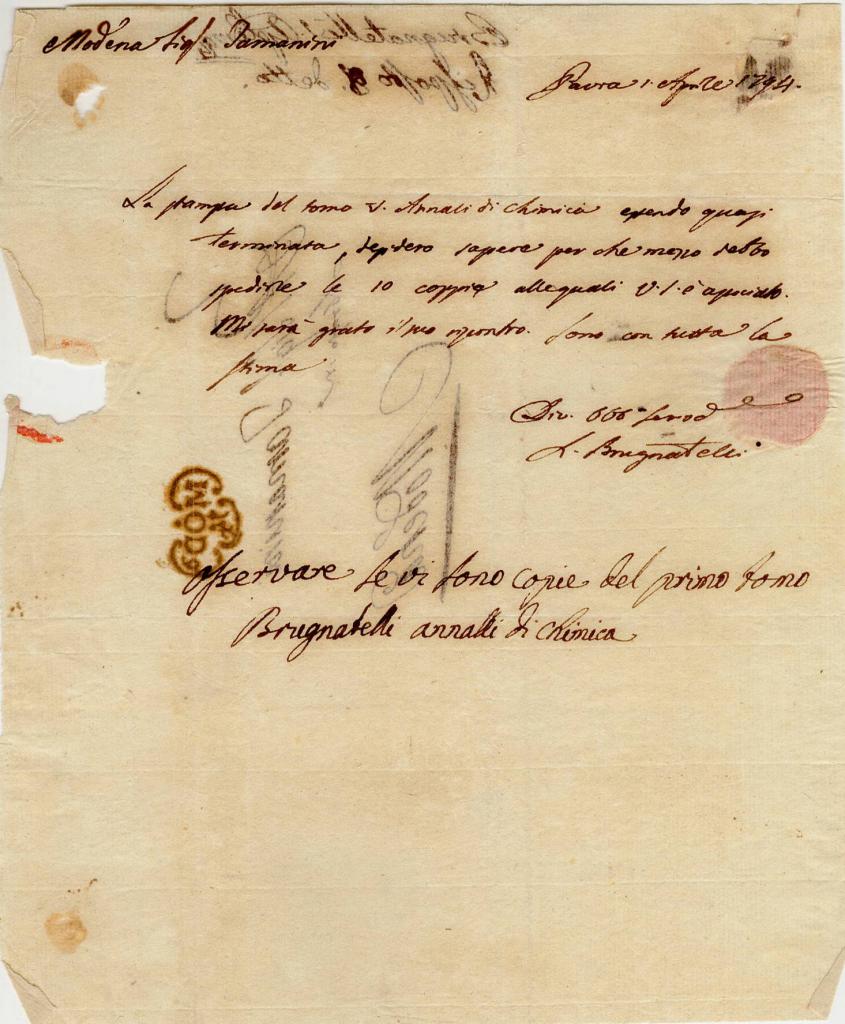 Modena Sig.r
Pavia 1. Aprile 1794.
La stampa del tomo V. Annali di Chimica essendo quasi
terminata, desidero sapere per che mezo debbo
spedirle le 10 coppie allequali V.S. è associato.
Mi sarà grato il suo riscontro. Sono con tutta la
stima
Div. Obb. Servod
L. Brugnatelli
Osservare se vi sono copie del primo tomo
Brugnatelli annalli di chimica